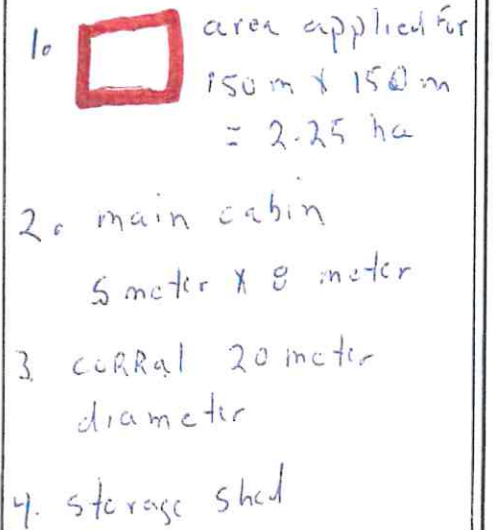 1. area applied for
150 m x 150 m
= 2.25 ha
2. main cabin
5 meter x 8 meter
3. CORRal 20 meter
diameter
4. storage shed